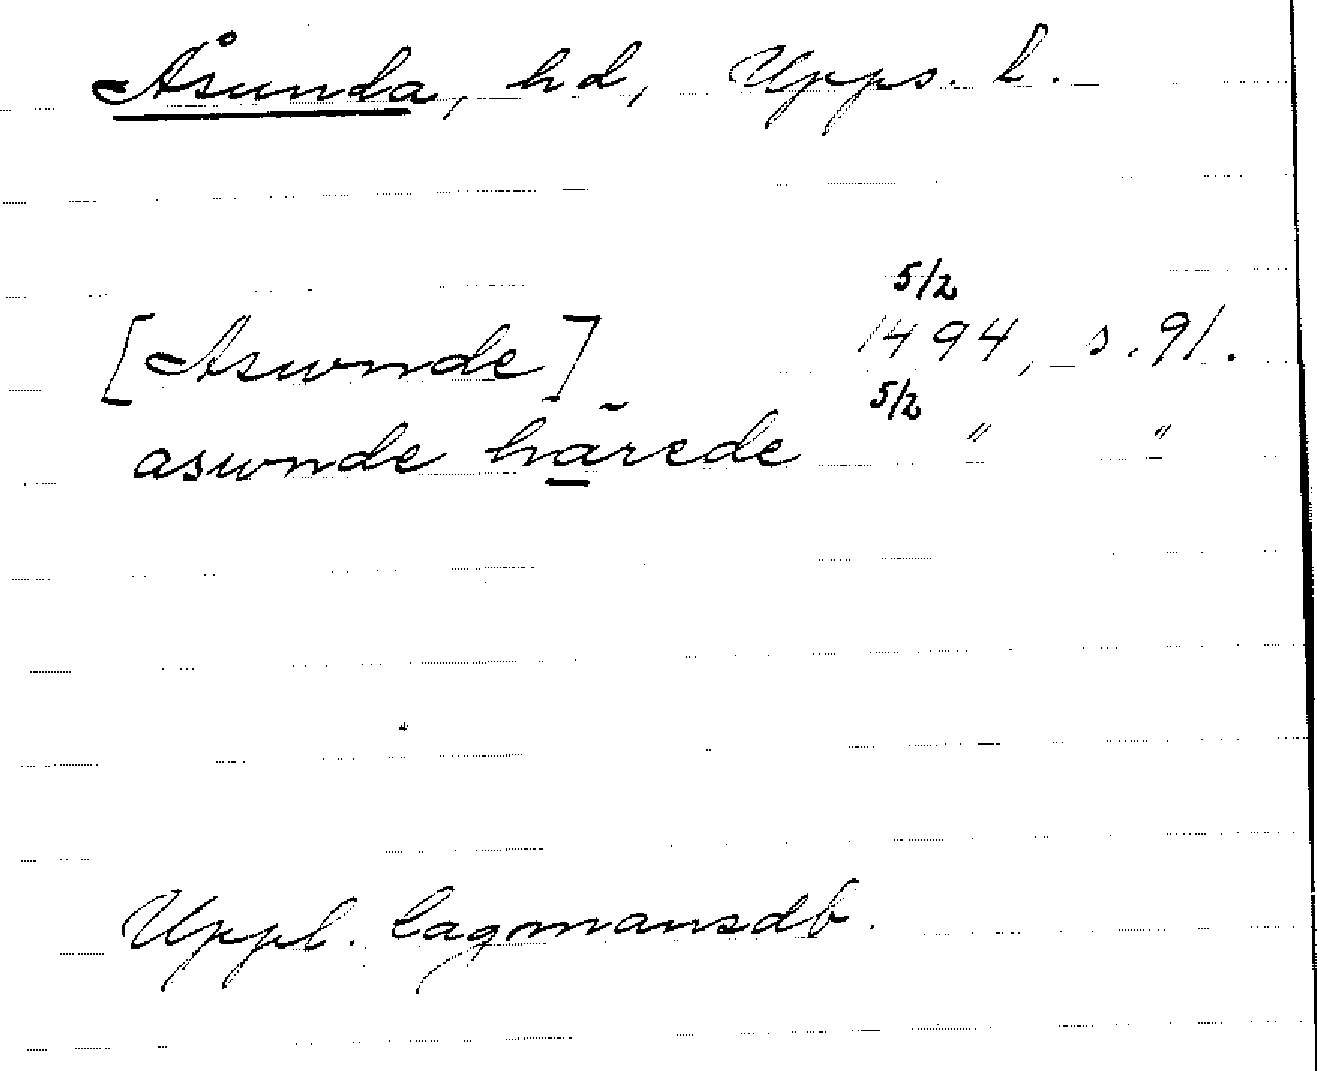 Åsunda, hd, Upps. l.
5/2
[Aswnde] 1494, s. 91.
5/2
aswnde härede " "
Uppl. lagmansdb.